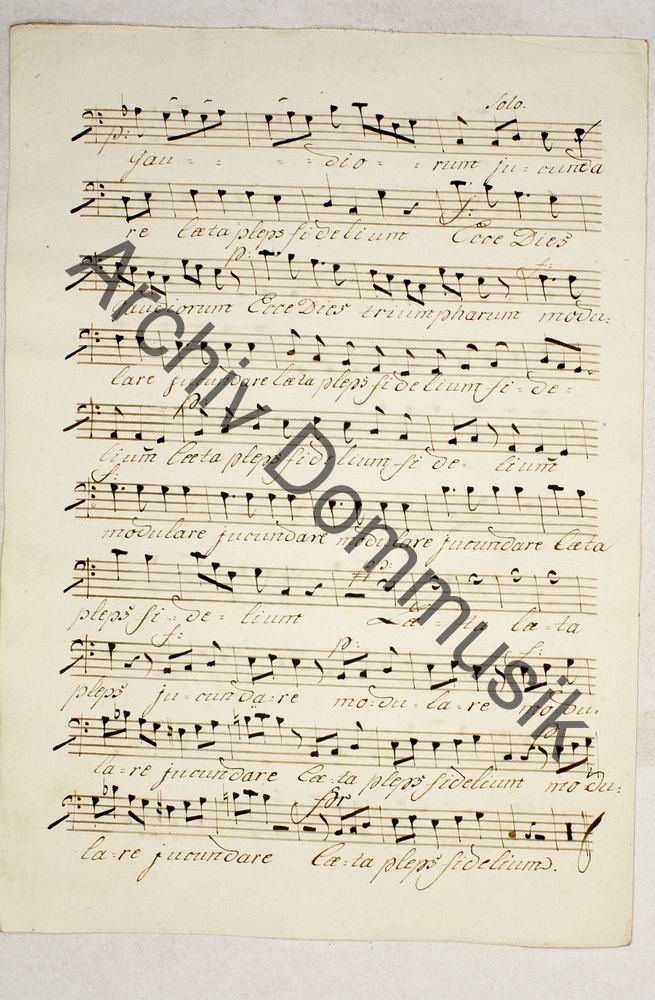 Solo.
p:
gau - - - dio - rum ju - cunda
f:
re læta plebs fidelium Ecce Dies
p: f:
gaudiorum Ecce Dies triumpharum modu:
lare jucundare læta plebs fidelium fi - de -
p:
lium læta plebs fidelium fi de - lium
f:
modulare jucundare modulare jucundare læta
plebs fi - de - lium Læ - ta læ - ta
f: p: f:
plebs ju - cunda - re mo - du - la - re mo - du -
la - re jucundare læ - ta plebs fidelium mo - du:
for
la - re jucundare læ - ta plebs fidelium.
Archiv Dommusik